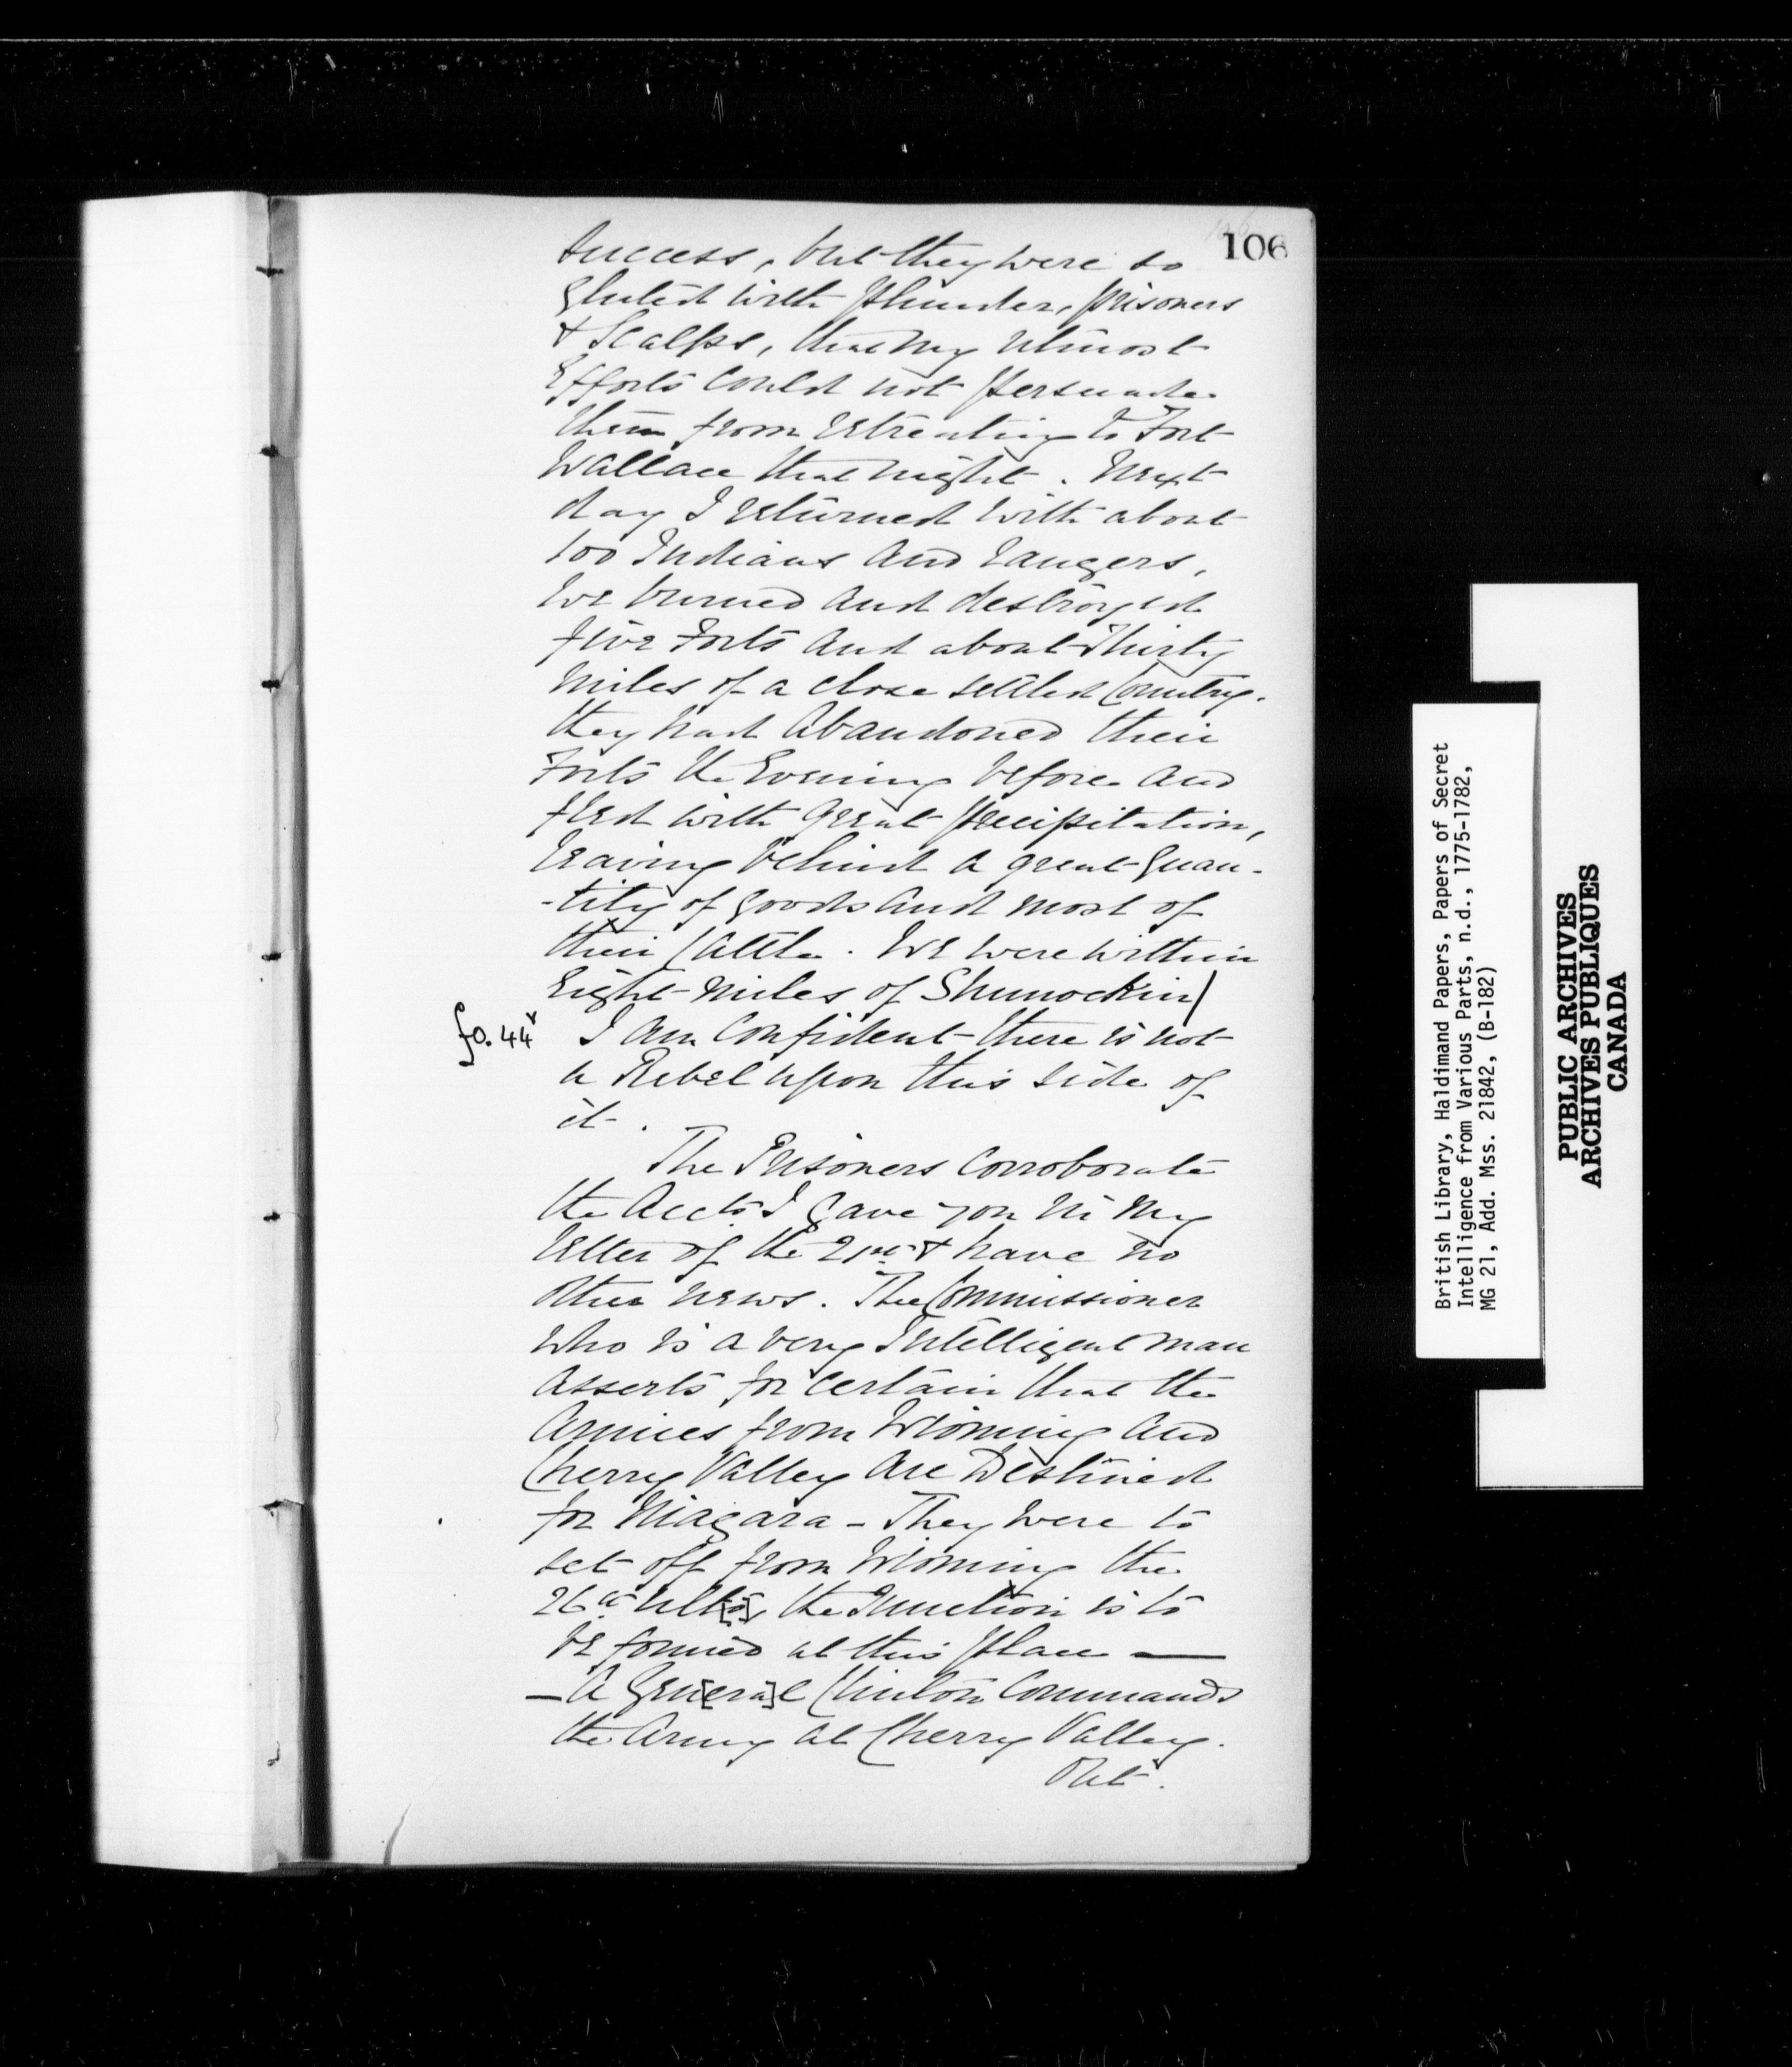 106
success, but they were so
gluted with plunder, prisoners
& Scalps, that my utmost
Efforts could not persuade
them from retreating to Fort
Wallace that night. Next
day I returned with about
100 Indians and Rangers,
we burned and destroyed
five Forts and about Thirty
miles of a close settled Country.
they had Abandoned their
Forts the Evening before and
fled with great precipitation,
leaving behind a great Quan-
-tity of goods and most of
their Cattle. We were within
Eight miles of Shumockin/
fo. 44v I am Confident there is not
a Rebel upon this side of
it.
The Prisoners Corroborate
the Accts. I gave you in my
letter of the & have no
other news. The Commissioner
who is a very Intelligent man
asserts for certain that the
Armies from Wioming and
Cherry Valley are Destined
for Niagara - They were to
set off from Wioming the
26th ult[o], the Junction is to
be formed at this place —
— A Gen[era]l Clinton Commands
the Army at Cherry Valley.
But.
British Library, Haldimand Papers, Papers of Secret
Intelligence from Various Parts, n.d., 1775-1782,
MG 21, Add. Mss. 21842, (B-182)
PUBLIC ARCHIVES
ARCHIVES PUBLIQUES
CANADA